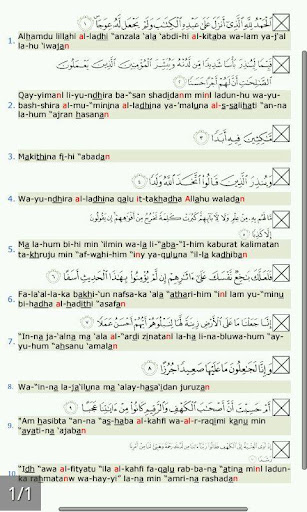 ٱلْحَمْدُ لِلَّهِ ٱلَّذِىٓ أَنزَلَ عَلَىٰ عَبْدِهِ ٱلْكِتَٰبَ وَلَمْ يَجْعَل لَّهُۥ عِوَجَا ۜ ١
1. Alhamdu lillahi al-ladhi “anzala ‘ala ‘abdi-hi al-kitaba wa-lam ya-j‘al
la-hu ‘iwajan
قَيِّمًا لِّيُنذِرَ بَأْسًا شَدِيدًا مِّن لَّدُنْهُ وَيُبَشِّرَ ٱلْمُؤْمِنِينَ ٱلَّذِينَ يَعْمَلُونَ
ٱلصَّٰلِحَٰتِ أَنَّ لَهُمْ أَجْرًا حَسَنًا ٢
2. Qay-yimanl li-yu-ndhira ba-“san shadidan minl ladun-hu wa-yu-
bash-shira al-mu-“minina al-ladhina ya-‘maluna al-s-salihati “an-na
la-hum “ajran hasanan
مَّٰكِثِينَ فِيهِ أَبَدًا ٣
3. Makithina fi-hi “abadan
وَيُنذِرَ ٱلَّذِينَ قَالُوا۟ ٱتَّخَذَ ٱللَّهُ وَلَدًا ٤
4. Wa-yu-ndhira al-ladhina qalu it-takhadha Allahu waladan
مَّا لَهُم بِهِۦ مِنْ عِلْمٍ وَلَا لِءَابَآئِهِمْ كَبُرَتْ كَلِمَةً تَخْرُجُ مِنْ أَفْوَٰهِهِمْ إِن يَقُولُونَ
إِلَّا كَذِبًا ٥
5. Ma la-hum bi-hi min ‘ilmin wa-la li-“aba-“I-him kaburat kalimatan
ta-khruju min “af-wahi-him “iny ya-quluna “il-la kadhiban
فَلَعَلَّكَ بَٰخِعٌ نَّفْسَكَ عَلَىٰٓ ءَاثَٰرِهِمْ إِن لَّمْ يُؤْمِنُوا۟ بِهَٰذَا ٱلْحَدِيثِ أَسَفًا ٦
6. Fa-la‘al-la-ka bakhi-‘un nafsa-ka ‘ala “athari-him “inl lam yu-“minu
bi-hadha al-hadithi “asafan
إِنَّا جَعَلْنَا مَا عَلَى ٱلْأَرْضِ زِينَةً لَّهَا لِنَبْلُوَهُمْ أَيُّهُمْ أَحْسَنُ عَمَلًا ٧
7. “In-na ja-‘alna ma ‘ala al-“ardi zinatanl la-ha li-na-bluwa-hum “ay-
yu-hum “ahsanu ‘amalan
وَإِنَّا لَجَٰعِلُونَ مَا عَلَيْهَا صَعِيدًا جُرُزًا ٨
8. Wa-“in-na la-ja‘iluna ma ‘alay-hasa‘idan juruzan
أَمْ حَسِبْتَ أَنَّ أَصْحَٰبَ ٱلْكَهْفِ وَٱلرَّقِيمِ كَانُوا۟ مِنْ ءَايَٰتِنَا عَجَبًا ٩
9. “Am hasibta “an-na “as-haba al-kahfi wa-al-r-raqimi kanu min
“ayati-na ‘ajaban
10. “Idh “awa al-fityatu “ila al-kahfi fa-qalu rab-ba-na “atina minl ladun-
ka rahmatanw wa-hay-yi“ la-na min “amri-na rashadan
1/1